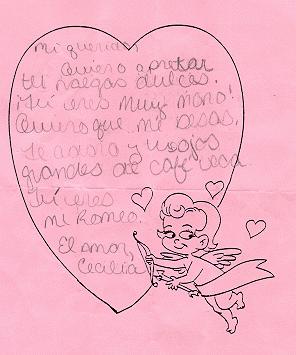 mi querido,
Quiero apretar
tu nalgas dulces.
¡Tú eres muy mono!
Quiero que me besas,
Te adoro y ojos
grandes de café
Tú eres
mi Romeo.
El amor,
Cecilia